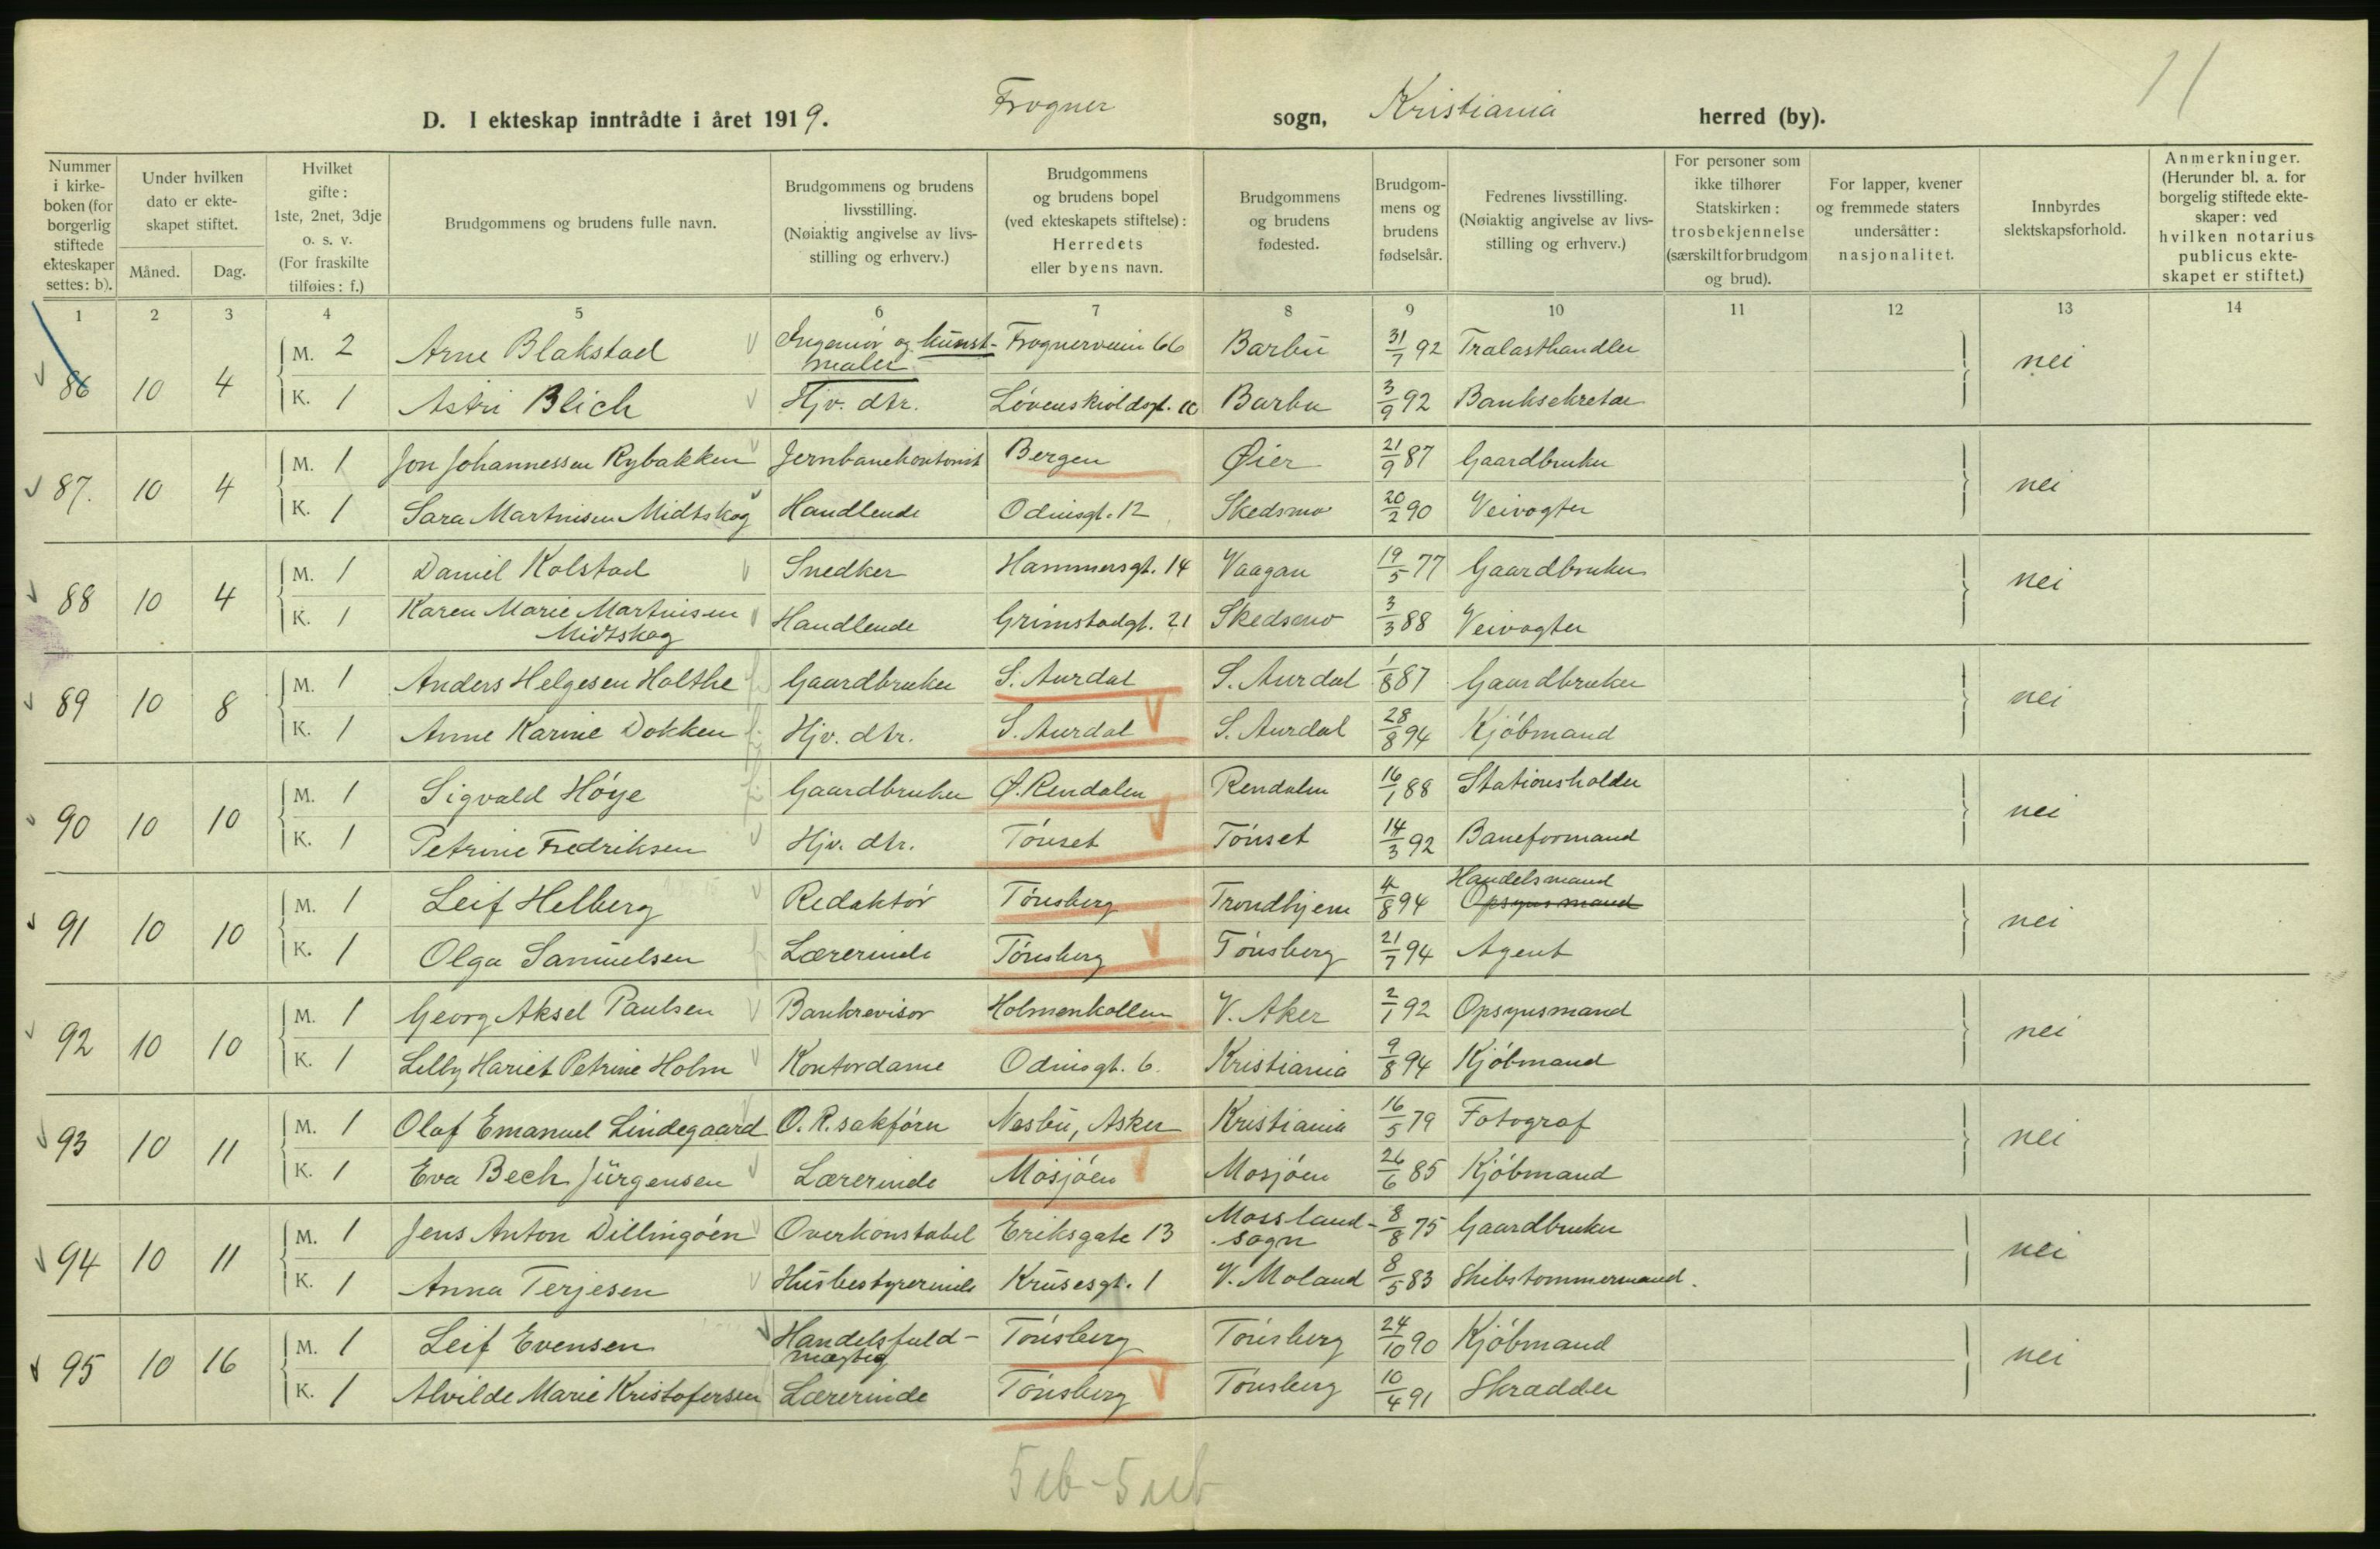 11
D. I ekteskap inntrådte i året 1919. Frogner sogn, Kristiania herred (by).
Nummer i kirkeboken (for borgerlig stiftede ekteskaper settes: b).
Under hvilken dato er ekteskapet stiftet.
Måned. Dag.
Hvilket gifte: 1ste, 2net, 3dje o. s. v. (For fraskilte tilføies: f.)
Brudgommens og brudens fulle navn.
Brudgommens og brudens livsstilling. (Nøiaktig angivelse av livsstilling og erhverv.)
Brudgommens og brudens bopel (ved ekteskapets stiftelse): Herredets eller byens navn.
Brudgommens og brudens fødested.
Brudgommens og brudens fødselsår.
Fedrenes livsstilling. (Nøiaktig angivelse av livsstilling og erhverv.)
For personer som ikke tilhører Statskirken: trosbekjennelse (særskilt for brudgom og brud).
For lapper, kvener og fremmede staters undersåtter: nasjonalitet.
Innbyrdes slektskapsforhold.
Anmerkninger. (Herunder bl. a. for borgelig stiftede ekteskaper: ved hvilken notarius publicus ekteskapet er stiftet.)
1 2 3 4 5 6 7 8 9 10 11 12 13 14
86 10 4 M. 2 Arne Blakstad Ingeniør og kunstmaler Frognerveien 66 Barbu 31/7 92 Trælasthandler nei
K. 1 Astri Blich Hjv. dtr. Løvenskioldsgt. 10 Barbu 3/9 92 Banksekretær
87. 10 4 M. 1 Jon Johannessen Rybakken Jernbanekontorist Bergen Øier 21/9 87 Gaardbruker nei
K. 1 Sara Martinsen Midtskog Handlende Odinsgt. 12 Skedsmo 20/2 90 Veivogter
88 10 4 M. 1 Daniel Kolstad Snedker Hammersgt. 14 Vaagan 19/5 77 Gaardbruker nei
K. 1 Karen Marie Martinisen Midtskog Handlende Grimstadgt. 21 Skedsmo 3/3 88 Veivogter
89 10 8 M. 1 Anders Helgesen Holthe Gaardbruker S. Aurdal S. Aurdal 1/8 87 Gaardbruker nei
K. 1 Anne Karine Dokken Hjv. dtr. S. Aurdal S. Aurdal 28/8 94 Kjøbmand
90 10 10 M. 1 Sigvald Høye Gaardbruker Ø. Rendalen Rendalen 16/1 88 Stationsholder nei
K. 1 Petrine Fredriksen Hjv. dtr. Tønset Tønset 14/3 92 Baneformand
91 10 10 M. 1 Leif Helberg Redaktør Tønsberg Trondhjem 4/8 94 Handelsmand Opsynsmand nei
K. 1 Olga Samuelsen Lærerinde Tønsberg Tønsberg 21/7 94 Agent
92 10 10 M. 1 Georg Aksel Paulsen Bankrevisor Holmenkollen V. Aker 2/1 92 Opsynsmand nei
K. 1 Lilly Hariet Petrine Holm Kontordame Odinsgt. 6. Kristiania 9/8 94 Kjøbmand
93 10 11 M. 1 Olaf Emanuel Lindegaard O. R. sakfører Nesbu, Asker Kristiania 16/5 79 Fotograf nei
K. 1 Eva Bech Jürgensen Lærerinde Mosjøen Mosjøen 26/6 85 Kjøbmand
94 10 11 M. 1 Jens Anton Dillingøen Overkonstabel Eriksgate 13 Mossland-sogn 8/8 75 Gaardbruker nei
K. 1 Anna Terjesen Husbestyrerinde Krusesgt. 1 V. Moland 8/5 83 Skibstømmermand.
95 10 16 M. 1 Leif Evensen Handelsfuldmægtig Tønsberg Tønsberg 24/10 90 Kjøbmand nei
K. 1 Alvilde Marie Kristofersen Lærerinde Tønsberg Tønsberg 10/4 91 Skrædder